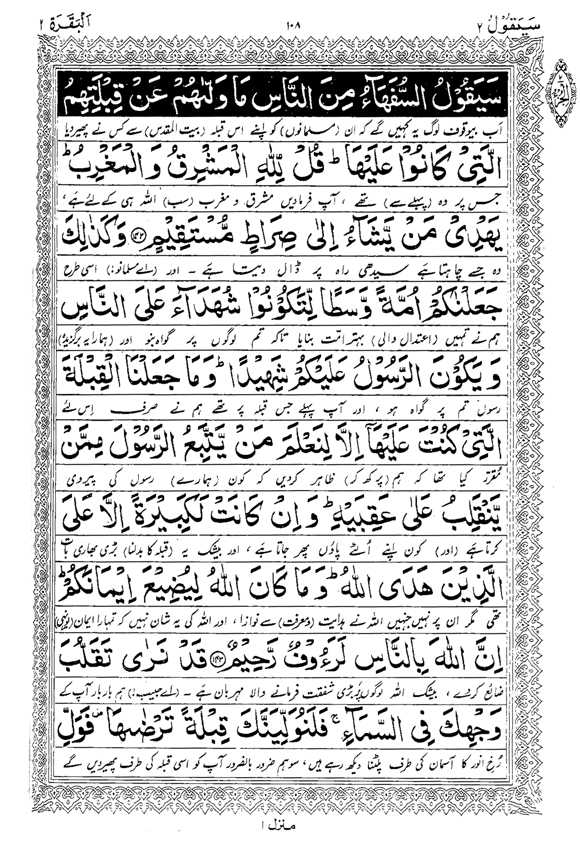 سَيَقُوْلُ ٢
١٠٨
اَلْبَقَرَة ٢
سَيَقُوْلُ السُّفَهَآءُ مِنَ النَّاسِ مَا وَلّٰىهُمْ عَنْ قِبْلَتِهِمُ
اَب بیوقوف لوگ یہ کہیں گے کہ اِن (مسلمانوں) کو اپنے اس قبلہ (بیت المقدس) سے کس نے پھیر دیا
الَّتِيْ كَانُوْا عَلَيْهَا ؕ قُلْ لِّلّٰهِ الْمَشْرِقُ وَ الْمَغْرِبُ ؕ
جس پر وہ (پہلے سے) تھے ، آپ فرما دیں مشرق و مغرب (سب) اللہ ہی کے لئے ہے ،
يَهْدِيْ مَنْ يَّشَآءُ اِلٰى صِرَاطٍ مُّسْتَقِيْمٍ ﴿۱۴۲﴾ وَ كَذٰلِكَ
وہ جسے چاہتا ہے سیدھی راہ پر ڈال دیتا ہے ۔ اور (اے مسلمانو!) اسی طرح
جَعَلْنٰكُمْ اُمَّةً وَّسَطًا لِّتَكُوْنُوْا شُهَدَآءَ عَلَى النَّاسِ
ہم نے تمہیں (اعتدال والی) بہتر امت بنایا تاکہ تم لوگوں پر گواہ بنو اور (ہمارا یہ برگزیدہ)
وَ يَكُوْنَ الرَّسُوْلُ عَلَيْكُمْ شَهِيْدًا ؕ وَ مَا جَعَلْنَا الْقِبْلَةَ
رسول تم پر گواہ ہو ، اور آپ پہلے جس قبلہ پر تھے ہم نے صرف اِس لئے
الَّتِيْ كُنْتَ عَلَيْهَاۤ اِلَّا لِنَعْلَمَ مَنْ يَّتَّبِعُ الرَّسُوْلَ مِمَّنْ
مقرر کیا تھا کہ ہم (پرکھ کر) ظاہر کر دیں کہ کون (ہمارے) رسول کی پیروی
يَّنْقَلِبُ عَلٰى عَقِبَيْهِ ؕ وَ اِنْ كَانَتْ لَكَبِيْرَةً اِلَّا عَلَى
کرتا ہے (اور) کون اپنے اُلٹے پاؤں پھر جاتا ہے ، اور بیشک یہ (قبلہ کا بدلنا) بڑی بھاری بات
الَّذِيْنَ هَدَى اللّٰهُ ؕ وَ مَا كَانَ اللّٰهُ لِيُضِيْعَ اِيْمَانَكُمْ ؕ
تھی مگر ان پر نہیں جنہیں اللہ نے ہدایت (و معرفت) سے نوازا ، اور اللہ کی یہ شان نہیں کہ تمہارا ایمان (یونہی)
اِنَّ اللّٰهَ بِالنَّاسِ لَرَءُوْفٌ رَّحِيْمٌ ﴿۱۴۳﴾ قَدْ نَرٰى تَقَلُّبَ
ضائع کر دے ، بیشک اللہ لوگوں پر بڑی شفقت فرمانے والا مہربان ہے ۔ (اے حبیب!) ہم بار بار آپ کے
وَجْهِكَ فِي السَّمَآءِ ۚ فَلَنُوَلِّيَنَّكَ قِبْلَةً تَرْضٰىهَا ۪ فَوَلِّ
رُخِ انور کا آسمان کی طرف پلٹنا دیکھ رہے ہیں ، سو ہم ضرور بالضرور آپ کو اسی قبلہ کی طرف پھیر دیں گے
منزل ١